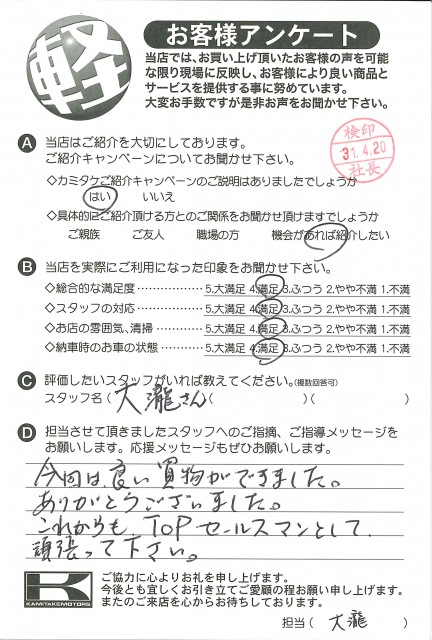 軽
お客様アンケート
当店では、お買い上げ頂いたお客様の声を可能
な限り現場に反映し、お客様により良い商品と
サービスを提供する事に努めています。
大変お手数ですが是非お声をお聞かせ下さい。
検印
31.4.20
社長
A 当店はご紹介を大切にしております。
ご紹介キャンペーンについてお聞かせ下さい。
◇カミタケご紹介キャンペーンのご説明はありましたでしょうか
はい いいえ
◇具体的にご紹介頂ける方とのご関係をお聞かせ頂けますでしょうか
ご親族 ご友人 職場の方 機会があれば紹介したい
B 当店を実際にご利用になった印象をお聞かせ下さい。
◇総合的な満足度……………5.大満足 4.満足 3.ふつう 2.やや不満 1.不満
◇スタッフの対応……………5.大満足 4.満足 3.ふつう 2.やや不満 1.不満
◇お店の雰囲気、清掃………5.大満足 4.満足 3.ふつう 2.やや不満 1.不満
◇納車時のお車の状態………5.大満足 4.満足 3.ふつう 2.やや不満 1.不満
C 評価したいスタッフがいれば教えてください。(複数回答可)
スタッフ名(大瀧さん)( )( )
D 担当させて頂きましたスタッフへのご指摘、ご指導メッセージを
お願いします。応援メッセージもぜひお願いします。
今回は良い買物ができました。
ありがとうございました。
これからもTOPセールスマンとして
頑張って下さい。
K
KAMITAKEMOTORS
ご協力に心よりお礼を申し上げます。
今後とも宜しくお引き立てご愛顧の程お願い申し上げます。
またのご来店を心からお待ちしております。
担当(大瀧)